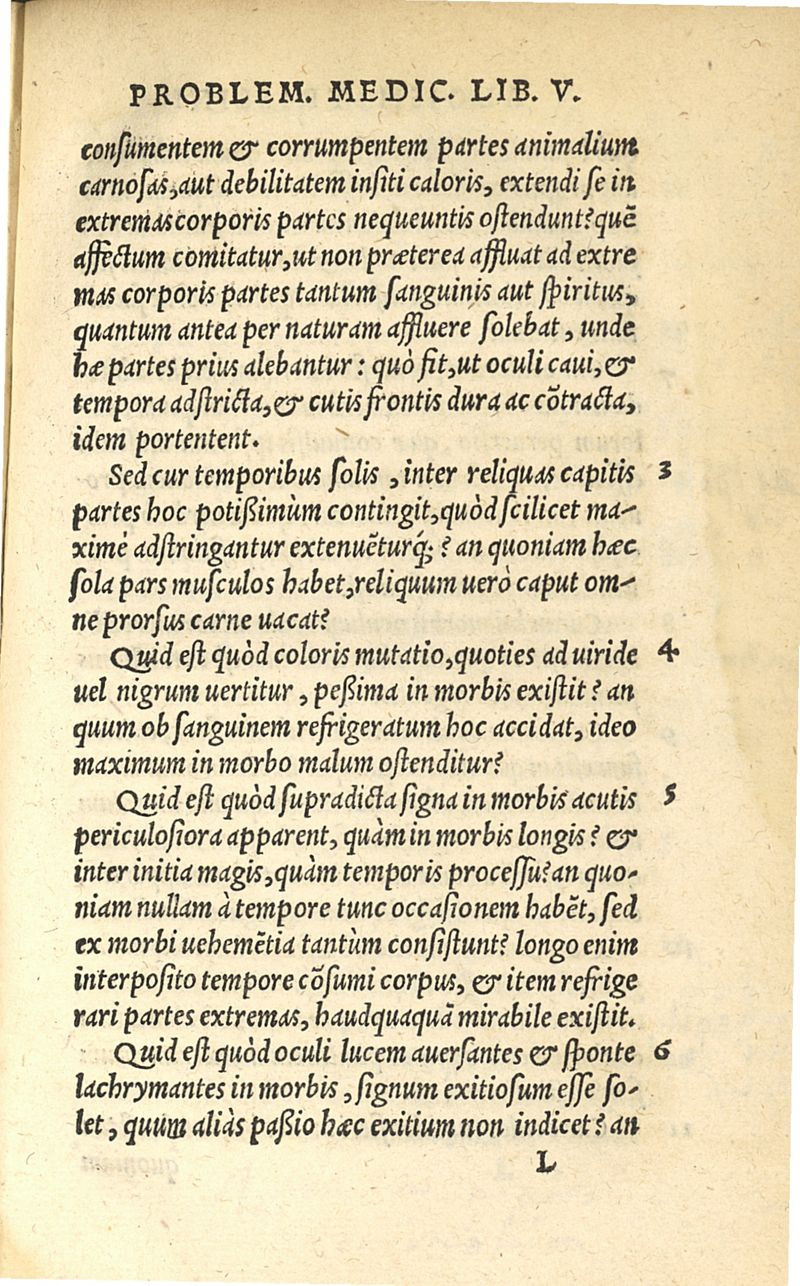 PROBLEM. MEDIC. LIB. V.
conſumentem & corrumpentem partes animalium
carnoſas,aut debilitatem inſiti caloris, extendi ſe in
extremas corporis partes nequeuntis oſtendunt?quẽ
affectum comitatur,ut non præterea affluat ad extre
mas corporis partes tantum ſanguinis aut ſpiritus,
quantum antea per naturam affluere ſolebat, unde
hæ partes prius alebantur: quò fit,ut oculi caui,&
tempora adſtricta,& cutis frontis dura ac cõtracta,
idem portentent.
Sed cur temporibus ſolis, inter reliquas capitis 3
partes hoc potißimùm contingit,quòd ſcilicet ma-
ximè adſtringantur extenuẽturq́;? an quoniam hæc
ſola pars muſculos habet,reliquum uerò caput om-
ne prorſus carne uacat?
Quid eſt quòd coloris mutatio,quoties ad uiride 4
uel nigrum uertitur, peßima in morbis exiſtit? an
quum ob ſanguinem refrigeratum hoc accidat, ideo
maximum in morbo malum oſtenditur?
Quid eſt quòd ſupradicta ſigna in morbis acutis 5
periculoſiora apparent, quàm in morbis longis? &
inter initia magis,quàm temporis proceſſu?an quo-
niam nullam à tempore tunc occaſionem habẽt, ſed
ex morbi uehemẽtia tantùm conſiſtunt? longo enim
interpoſito tempore cõſumi corpus, & item refrige
rari partes extremas, haudquaquã mirabile exiſtit.
Quid eſt quòd oculi lucem auerſantes & ſponte 6
lachrymantes in morbis, ſignum exitioſum eſſe ſo-
let, quum aliàs paßio hæc exitium non indicet? an
L